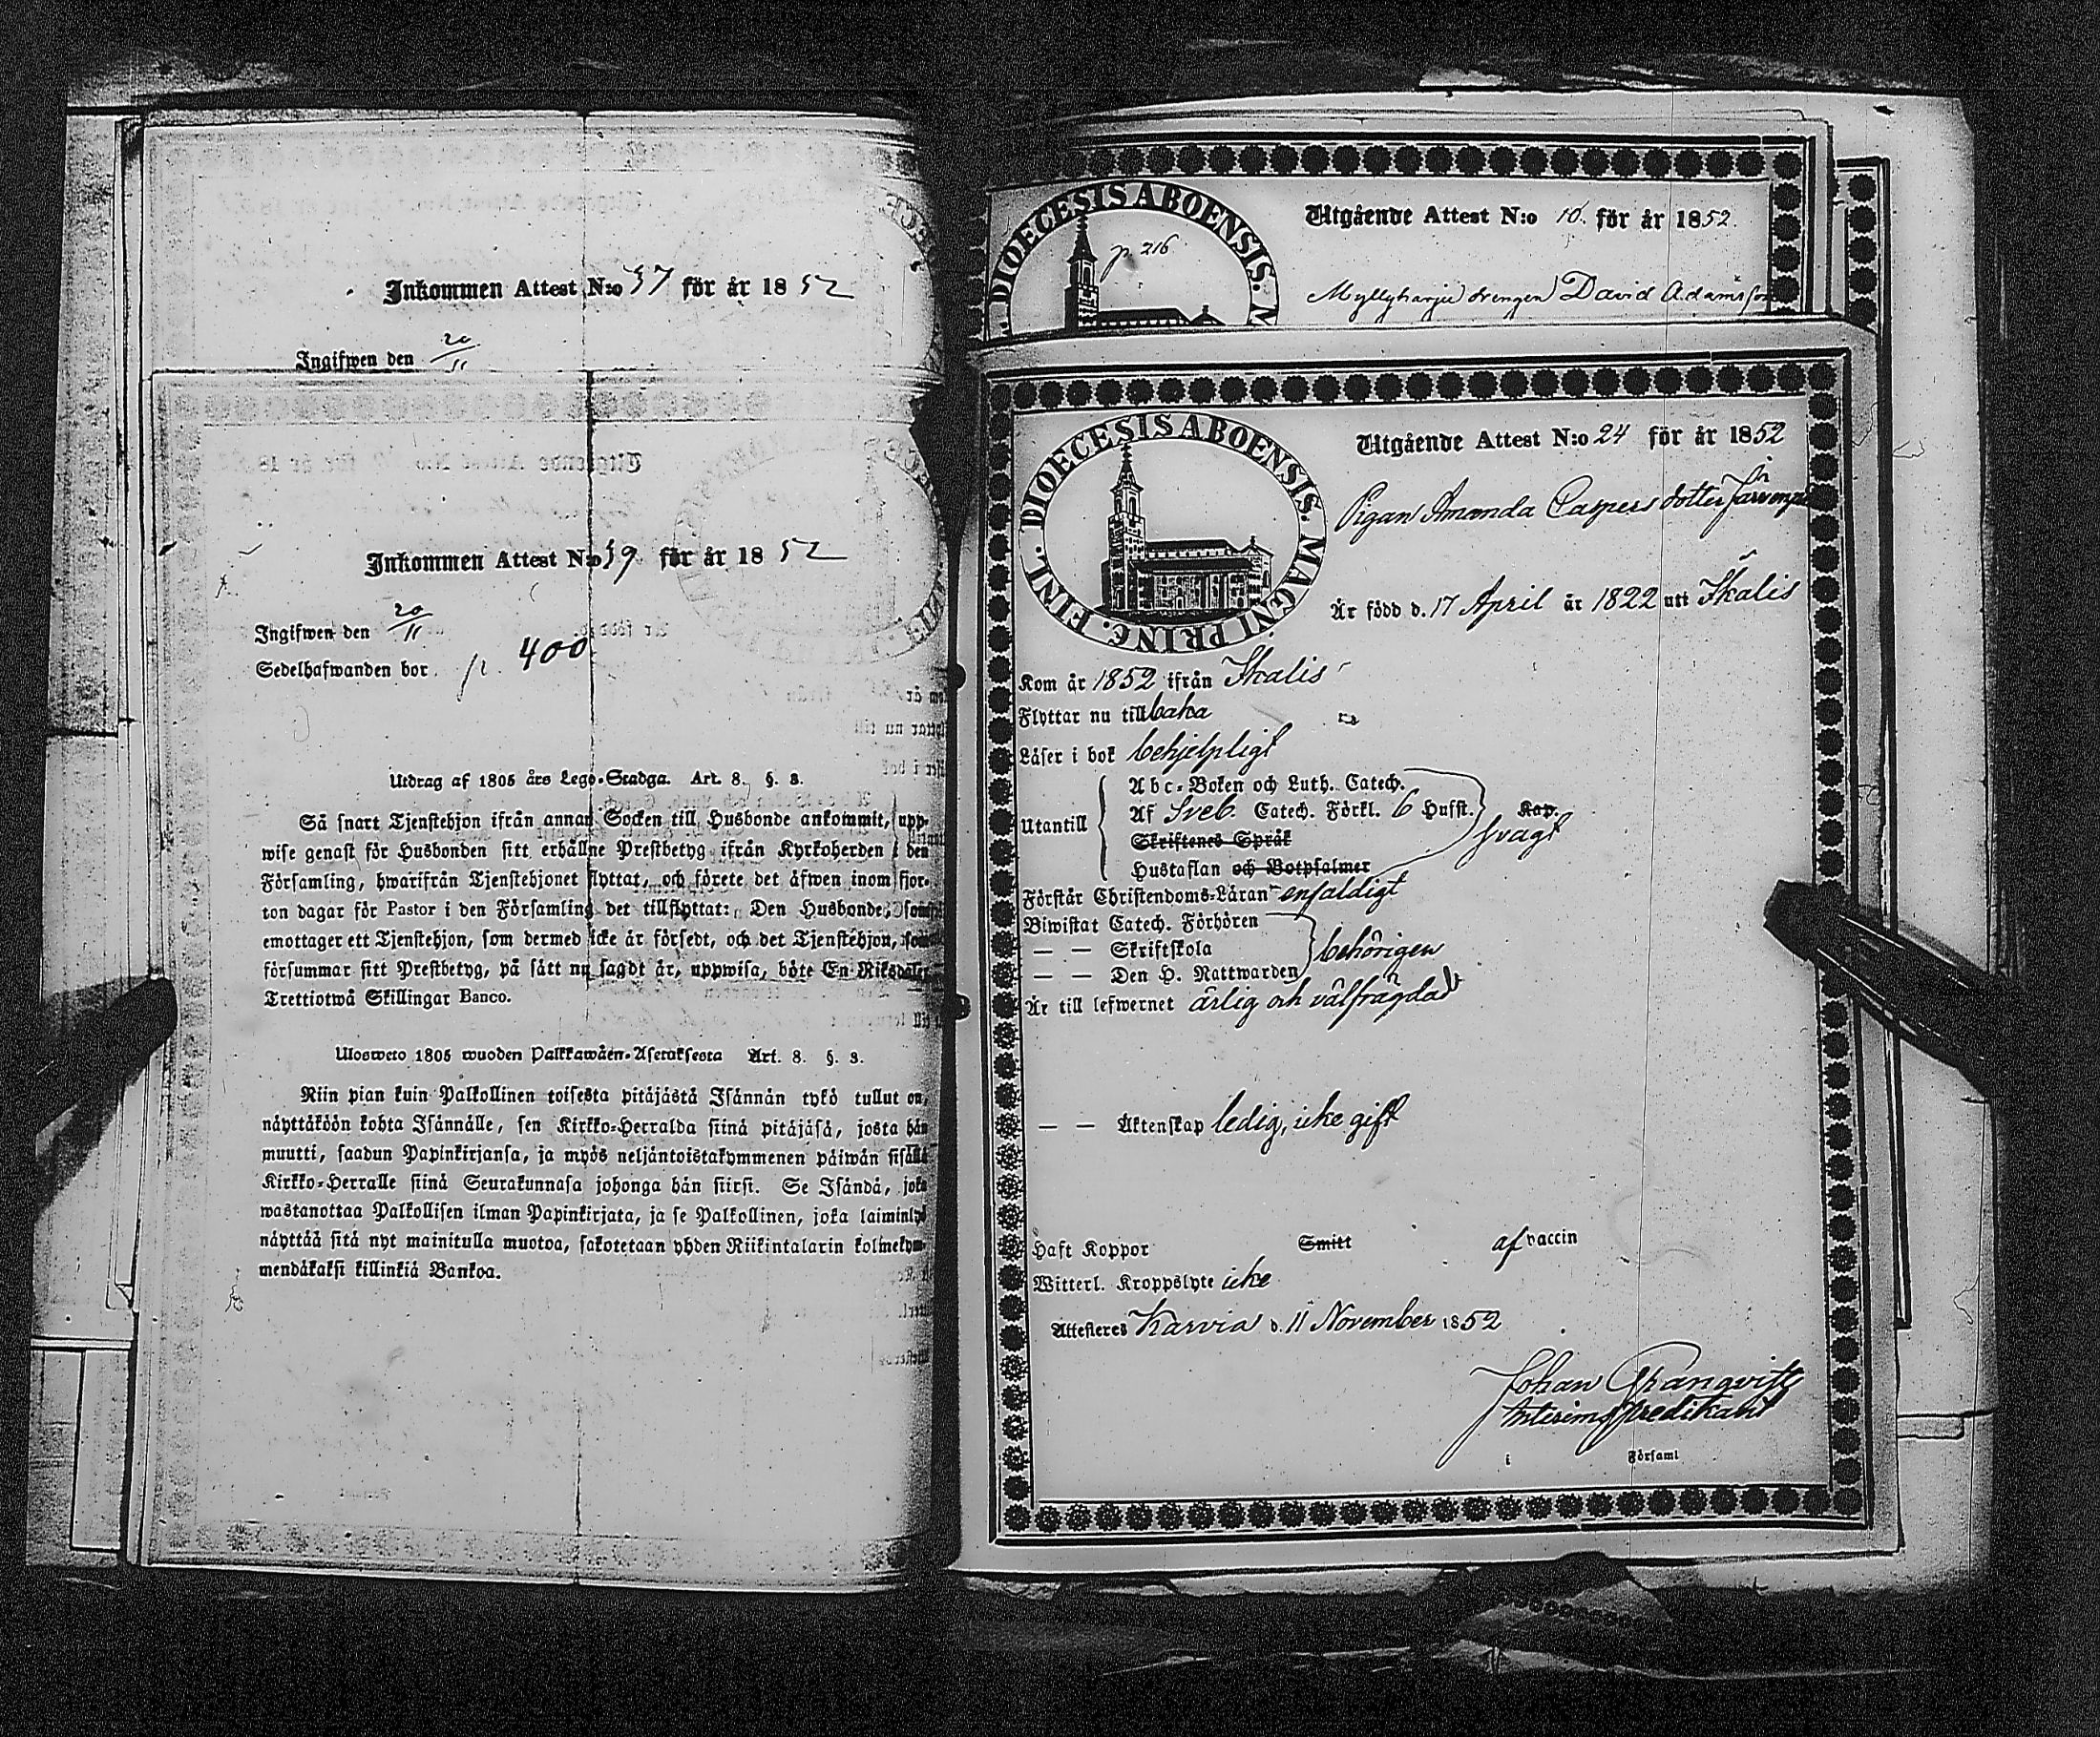 Inkommen Attest N:o 37 för år 1852
Ingifwen den 20/11
Inkommen Attest N:o 39 för år 1852
Ingifwen den 20/11
Sedelhafwanden bor p. 400
Utdrag af 1805 års Lego-Stadga. Art. 8. §. 3.
Så snart Tjenstehjon ifrån annan Socken till Husbonde ankommit, upp-
wise genast för Husbonden sitt erhållne Prestbetyg ifrån Kyrkoherden i den
Församling, hwarifrån Tjenstehjonet flyttat, och förete det äfwen inom fjor-
ton dagar för Pastor i den Församling det tillflyttat: Den Husbonde, som
emottager ett Tjenstehjon, som dermed icke är försedt, och det Tjenstehjon, som
försummar sitt Prestbetyg, på sätt nu sagdt är, uppwisa, böte En Riksdaler
Trettiotwå Skillingar Banco.
Ulosweto 1805 wuoden Palkkawäen-Asetuksesta Art. 8. §. 3.
Niin pian kuin Palkollinen toisesta pitäjästä Isännän tykö tullut on,
näyttäköön kohta Isännälle, sen Kirkko-Herralda siinä pitäjäsä, josta hän
muutti, saadun Papinkirjansa, ja myös neljäntoistakymmenen päiwän sisällä
Kirkko-Herralle siinä Seurakunnasa johonga hän siirsi. Se Isändä, joka
wastanottaa Palkollisen ilman Papinkirjata, ja se Palkollinen, joka laiminlyö
näyttää sitä nyt mainitulla muotoa, sakotetaan yhden Riikintalarin kolmekym-
mendäkaksi killinkiä Bankoa.
DIOECESIS ABOENSIS. M
p. 216
Utgående Attest N:o 10. för år 1852.
Myllyharju drengen David Adamsson
DIOECESIS ABOENSIS. MAGNI PRINC. FINL.
Utgående Attest N:o 24 för år 1852
Pigan Amanda Caspersdotter
Är född d. 17 April år 1822 utt Ikalis
Kom år 1852 ifrån Ikalis
Flyttar nu tillbaka
Läser i bok behjelpligt
Utantill
Abc-Boken och Luth. Catech.
Af Sveb. Catech. Förkl. 6 Hufst. Kap.
Skriftenes Språk
svagt
Hustaflan och Botpsalmer
Förstår Christendoms-Läran enfaldigt
Biwistat Catech. Förhören
— — Skriftskola
behörigen
— — Den H. Nattwarden
Är till lefwernet ärlig och välfrägdad
— — Äktenskap ledig, icke gift
Haft Koppor Smitt af vaccin
Witterl. Kroppslyte icke
Attesteres Karvia d. 11 November 1852
Johan Granqvist
Interims predikant
i Församl